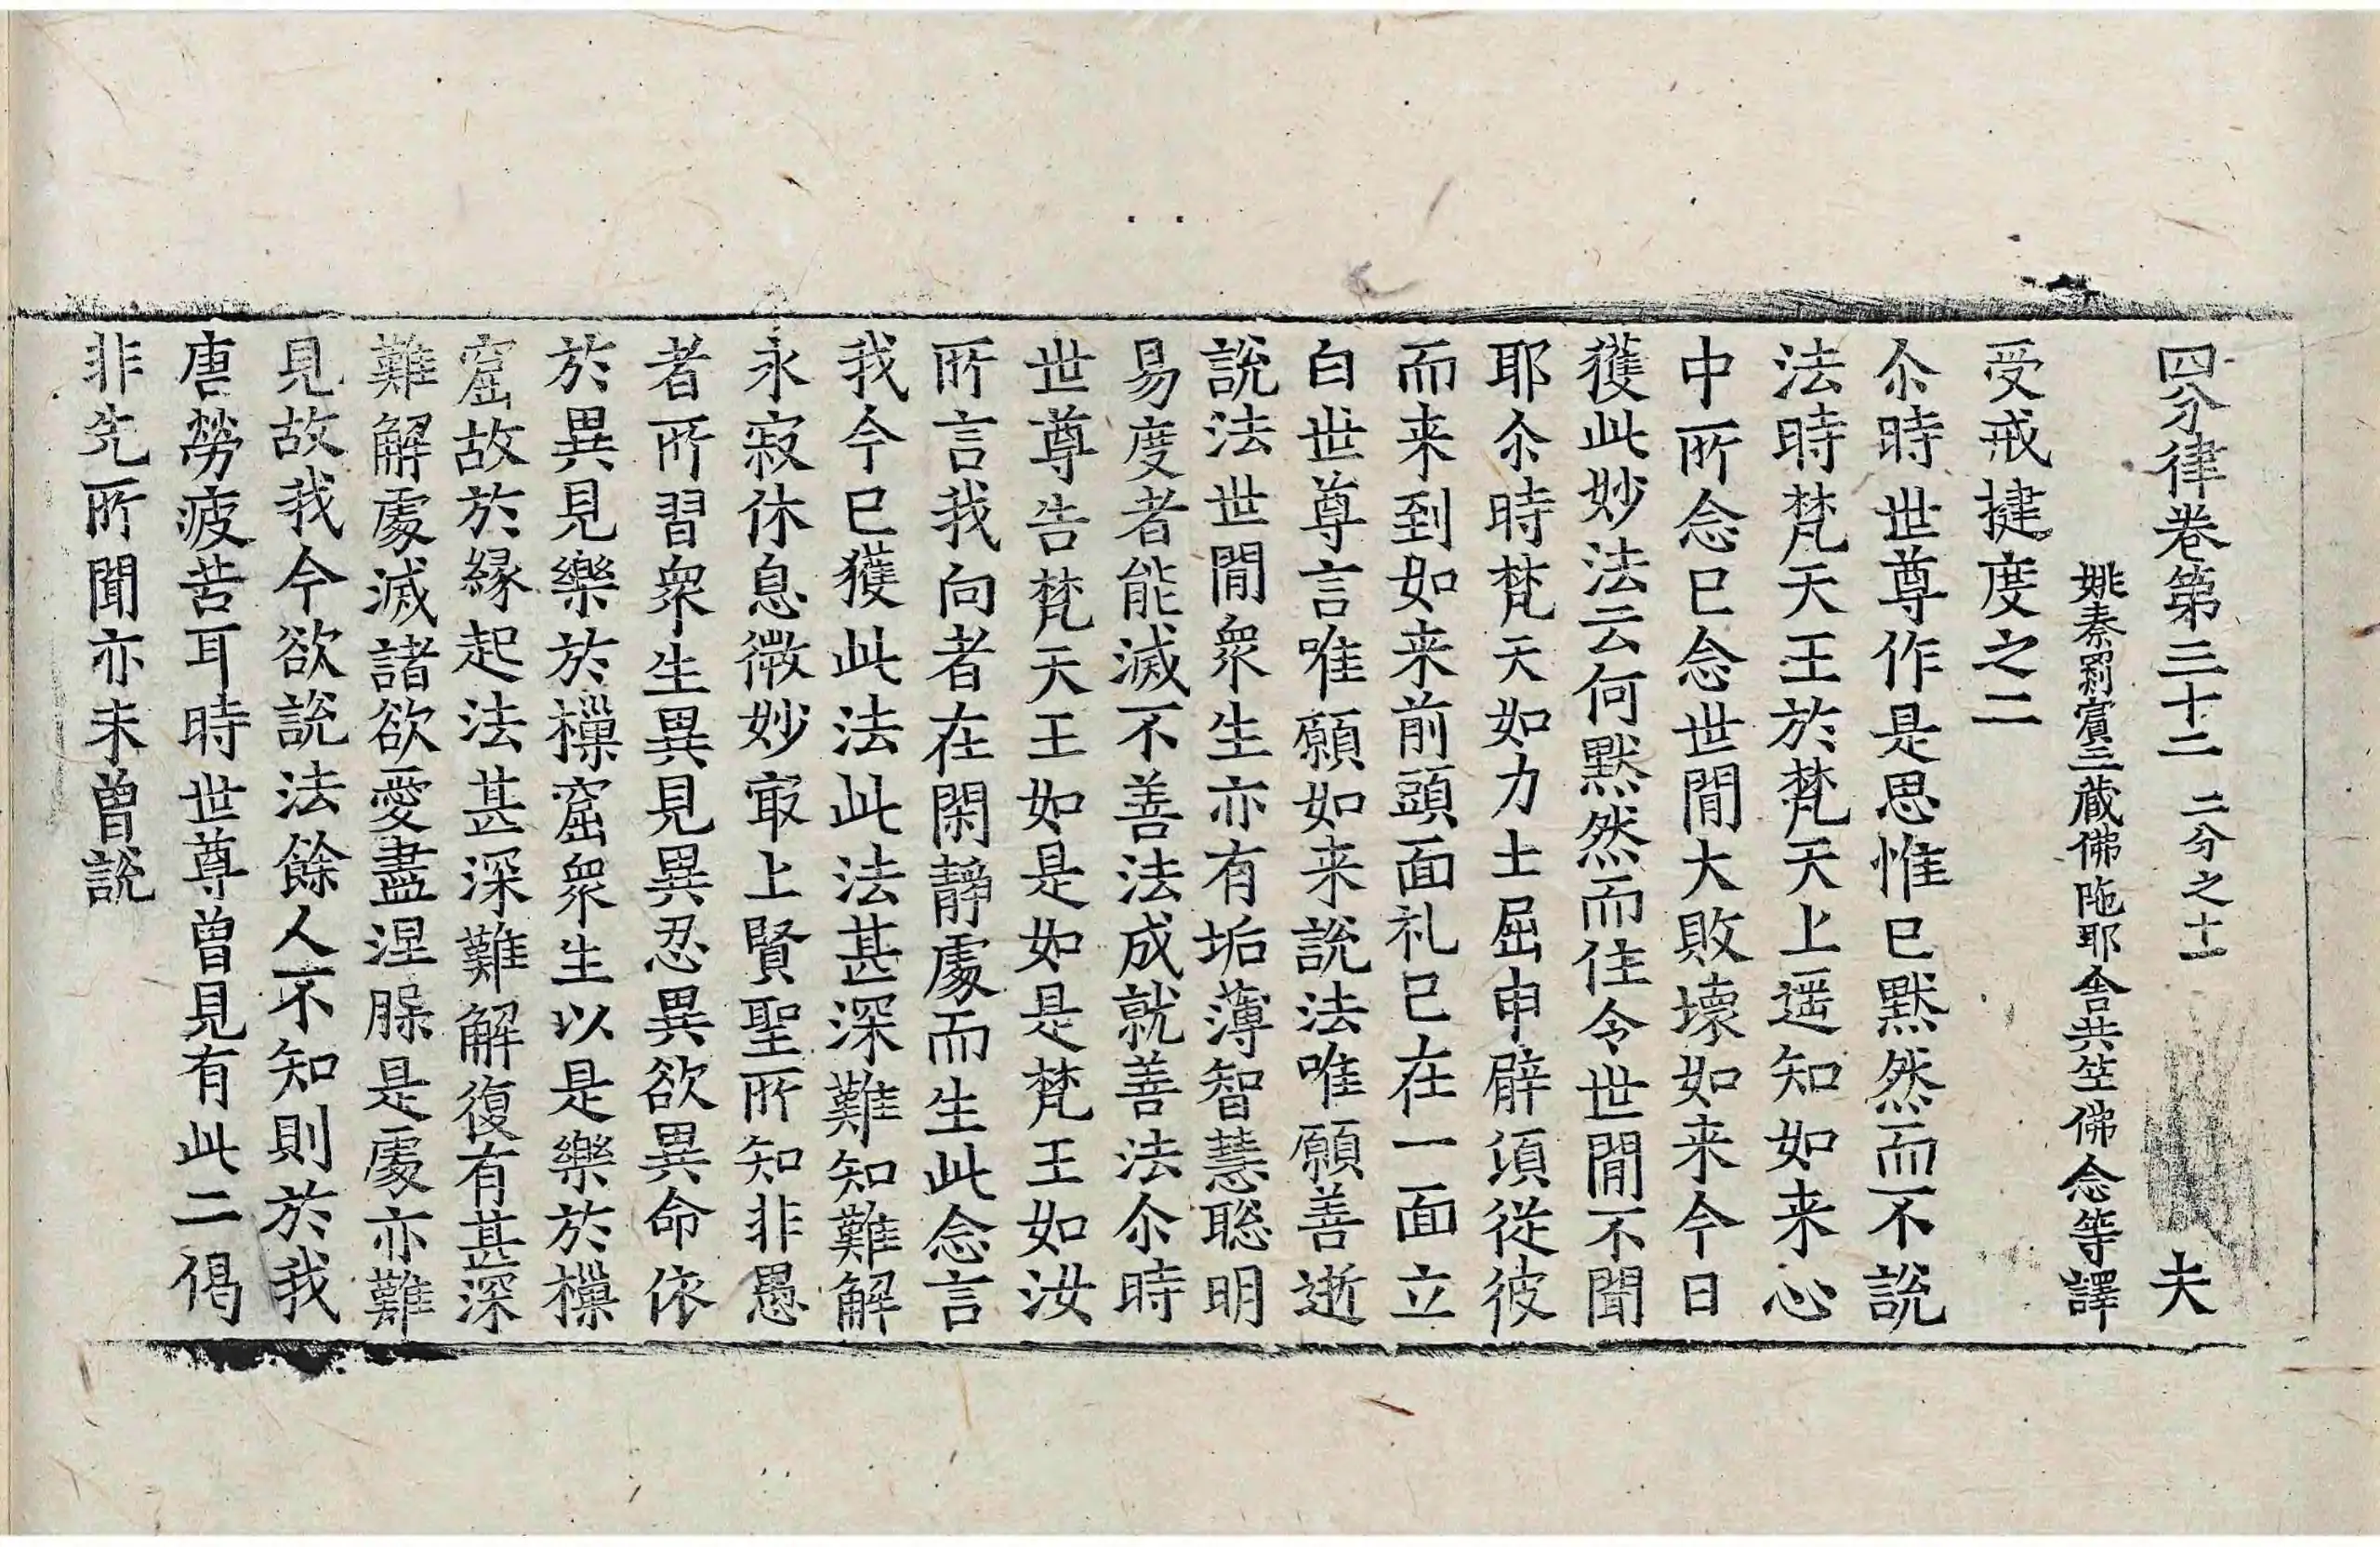 四分律卷第三十二 二分之十一 夫
姚秦罽賓三藏佛陁耶舍共竺佛念等譯
受戒揵度之二
尒時世尊作是思惟已默然而不說
法時梵天王於梵天上遥知如来心
中所念已念世閒大敗壞如来今日
獲此妙法云何默然而住令世閒不聞
耶尒時梵天如力士屈申臂頃從彼
而来到如来前頭面礼已在一面立
白世尊言唯願如来說法唯願善逝
說法世閒衆生亦有垢薄智慧聡明
易度者能滅不善法成就善法尒時
世尊告梵天王如是如是梵王如汝
所言我向者在閑靜處而生此念言
我今已獲此法此法甚深難知難解
永寂休息微妙冣上賢聖所知非愚
者所習衆生異見異忍異欲異命依
於異見樂於樔窟衆生以是樂於樔
窟故於緣起法甚深難解復有甚深
難解處滅諸欲愛盡涅䏶是處亦難
見故我今欲說法餘人不知則於我
唐勞疲苦耳時世尊曽見有此二偈
非先所聞亦未曽說